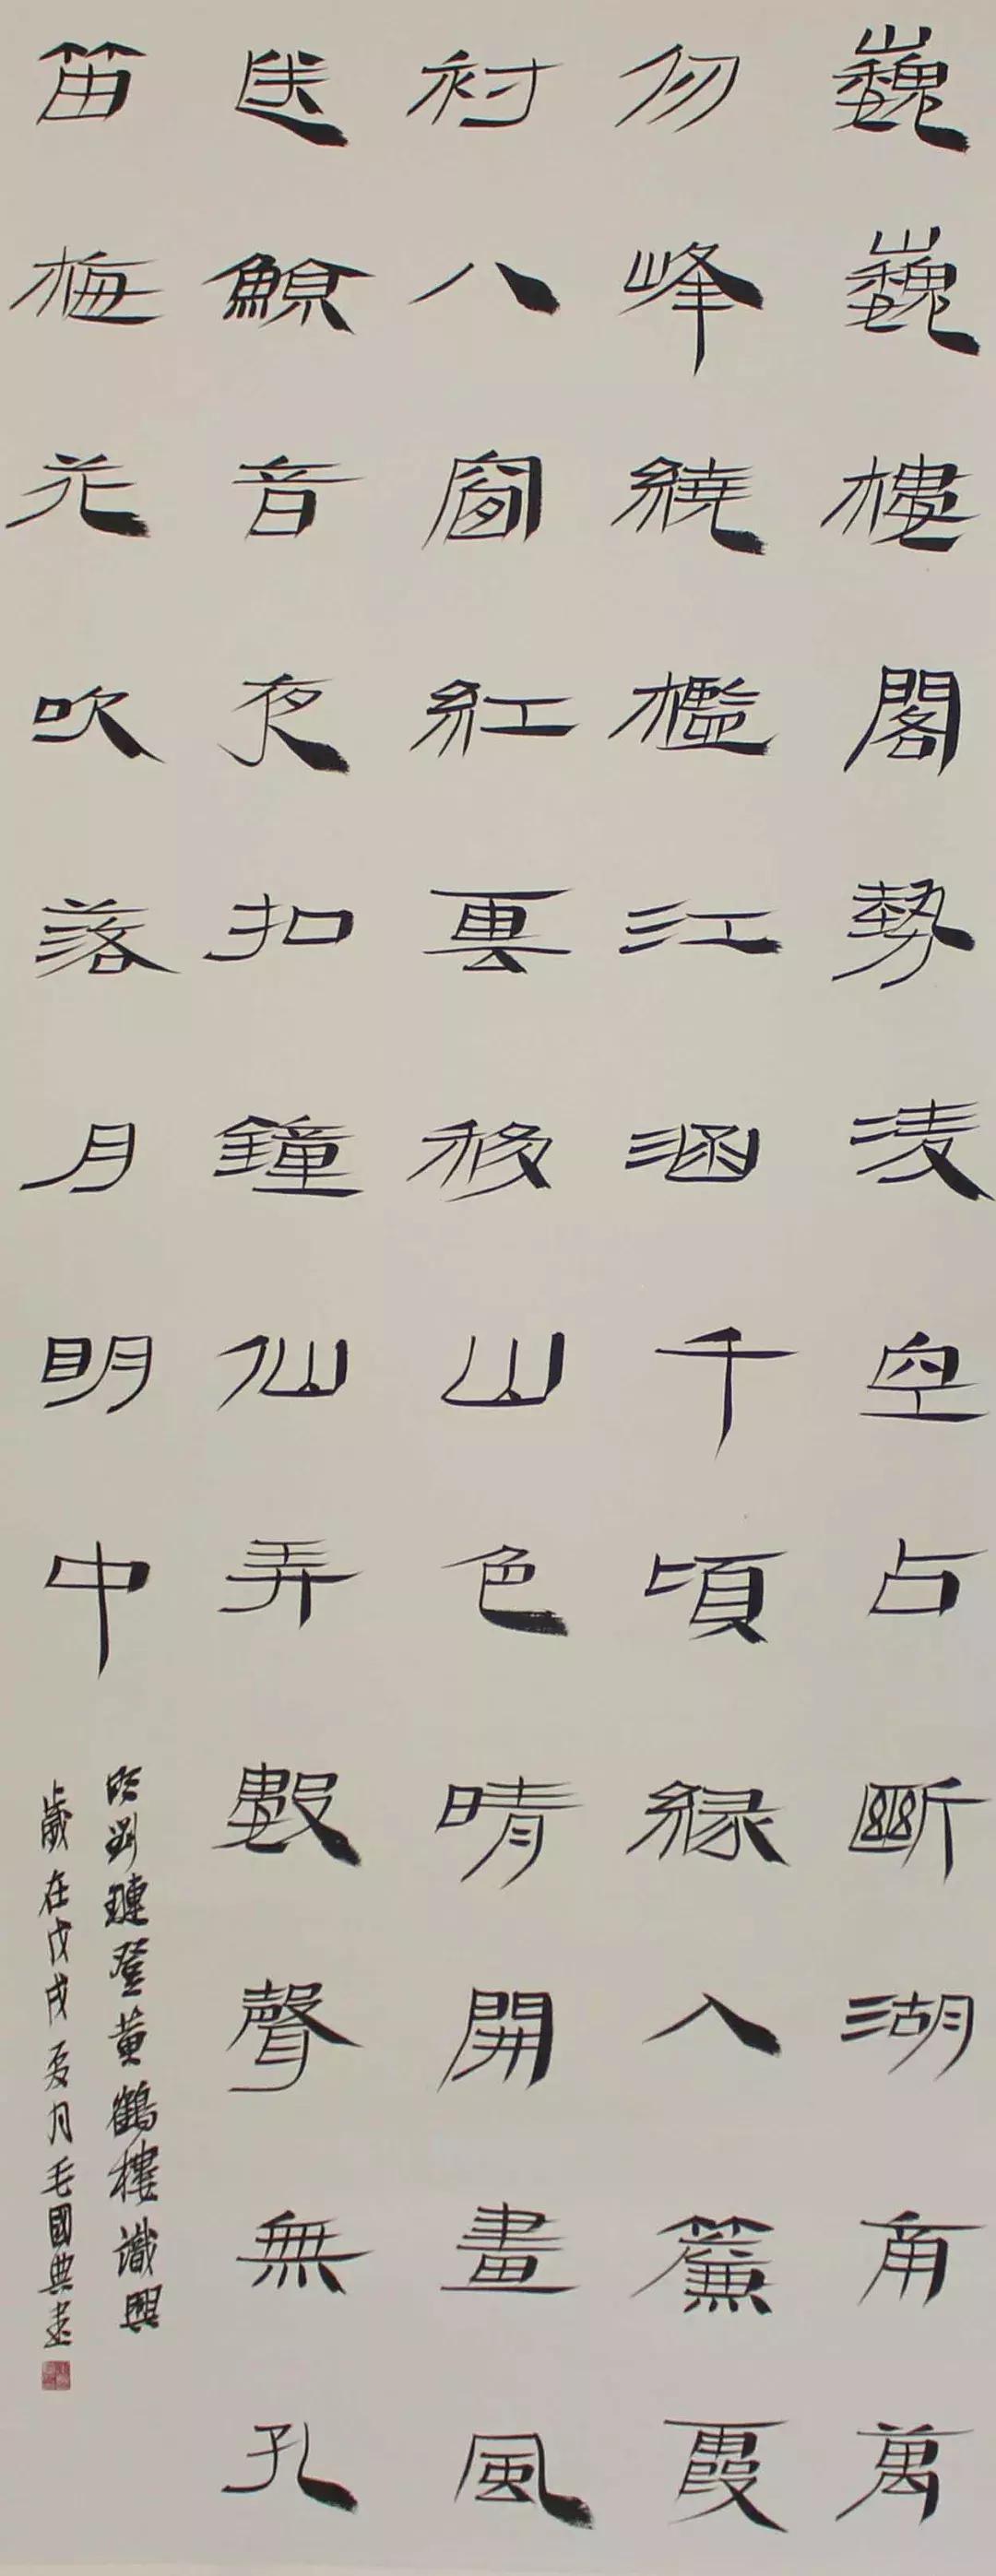 巍巍樓閣勢淩空占斷湖角萬
仞峰繞檻江涵千頃緑入簾霞
衬八窗紅雲移山色晴開畫風
送鯨音夜扣鐘仙弄數聲無孔
笛梅花吹落月明中
明劉璉登黄鶴樓識興
歲在戊戌夏月毛國典書